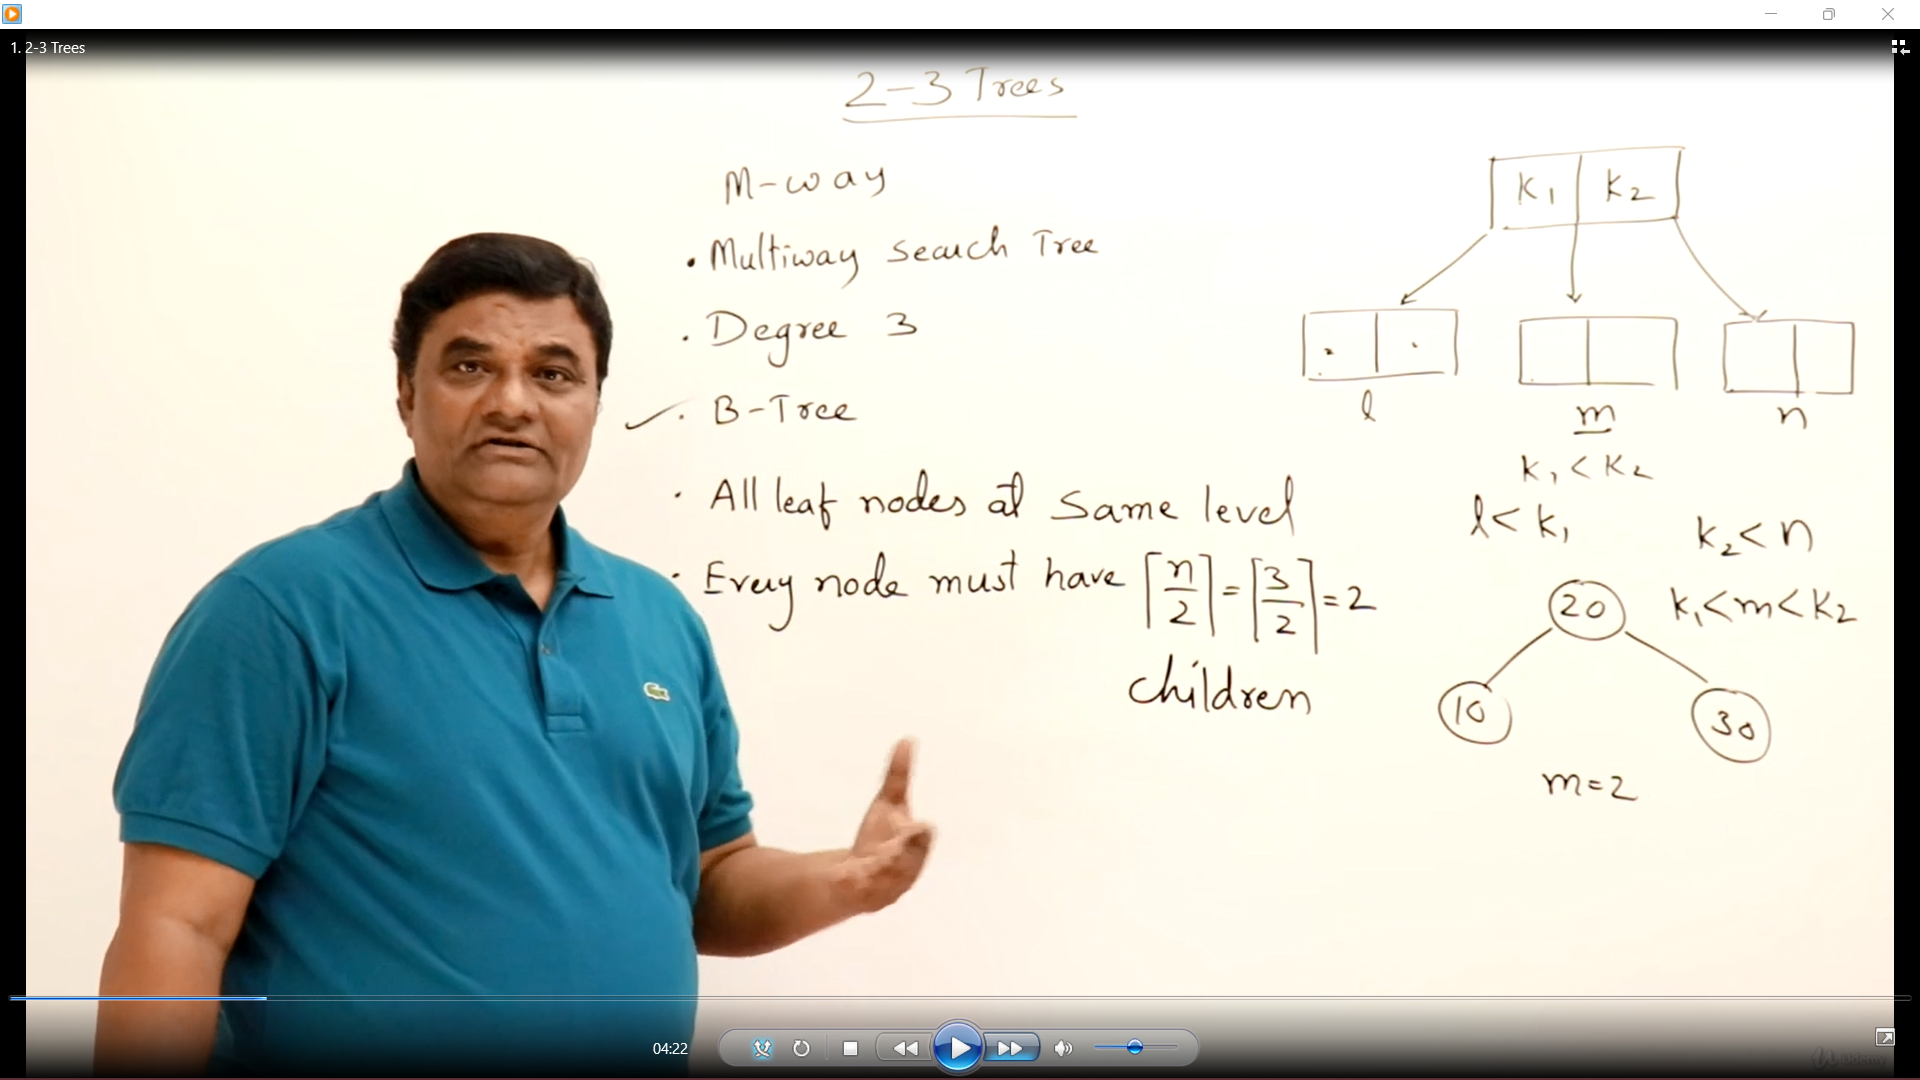 1. 2-3 Trees
2-3 Trees
M-way
• Multiway search Tree
• Degree 3
✓ • B-Tree
• All leaf nodes at same level
• Every node must have ⌈n/2⌉ = ⌈3/2⌉ = 2
children
K₁ K₂
l m n
K₁ < K₂
l < K₁
K₂ < n
K₁ < m < K₂
20
10 30
m = 2
04:22
Udemy